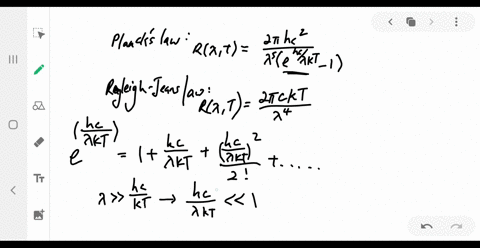 Planck's law: R(λ,T) = 2πhc² / λ⁵(e^(hc/λkT) -1)
Rayleigh-Jeans law: R(λ,T) = 2πckT / λ⁴
e^(hc/λkT) = 1 + hc/λkT + (hc/λkT)²/2! + .....
λ >> hc/kT → hc/λkT << 1
Tт